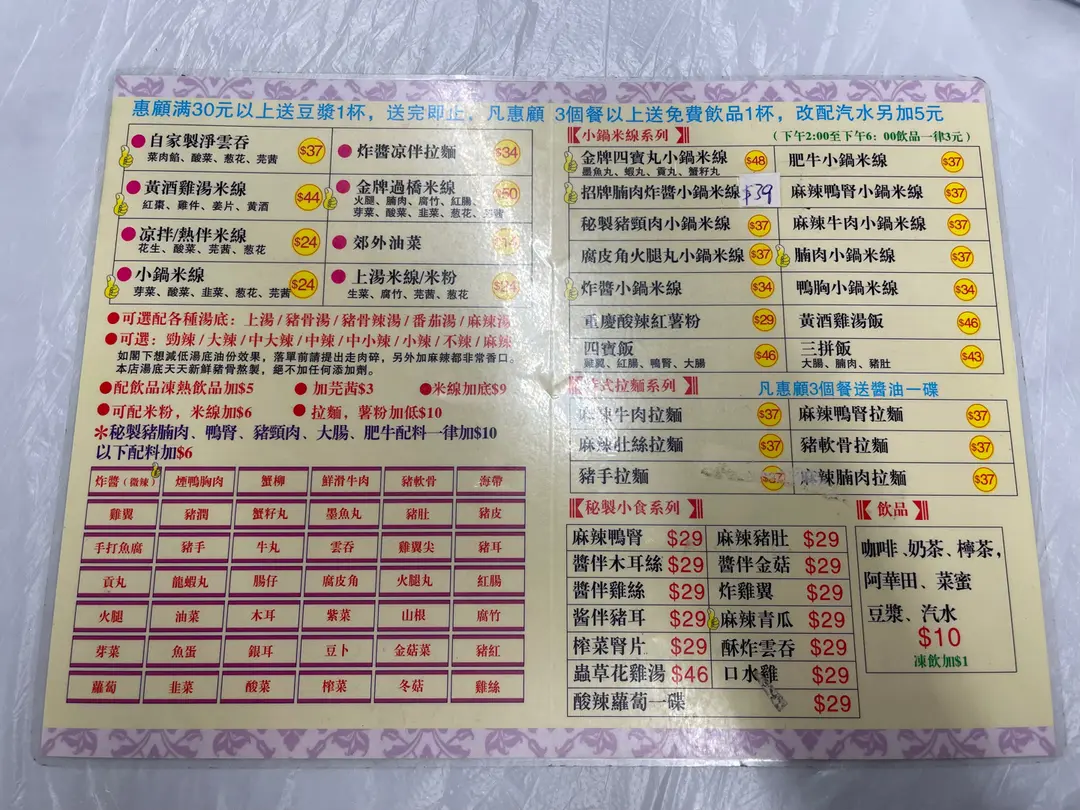 惠顧满30元以上送豆漿1杯，送完即止，凡惠顧 3個餐以上送免費飲品1杯，改配汽水另加5元
自家製淨雲吞 $37
菜肉餡、酸菜、葱花、芫茜
炸醬凉伴拉麵 $34
黃酒雞湯米線 $44
紅棗、雞件、姜片、黄酒
金牌過橋米線
火腿、腩肉、腐竹、紅腸、
芽菜、酸菜、韭菜、葱花、
凉拌/熱伴米線 $24
花生、酸菜、芫茜、葱花
郊外油菜
小鍋米線 $24
芽菜、酸菜、韭菜、葱花、芫茜
上湯米線/米粉 $24
生菜、腐竹、芫茜、葱花
●可選配各種湯底：上湯/豬骨湯/豬骨辣湯/番茄湯/麻辣湯
●可選：勁辣/大辣/中大辣/中辣/中小辣/小辣/不辣/麻辣
如閣下想減低湯底油份效果，落單前請提出走肉碎，另外加麻辣都非常香口。
本店湯底天天新鮮豬骨熬製，絕不加任何添加劑。
●配飲品凍熱飲品加$5 ●加芫茜$3 ●米線加底$9
●可配米粉，米線加$6 ●拉麵，薯粉加低$10
＊秘製豬腩肉、鴨腎、豬頸肉、大腸、肥牛配料一律加$10
以下配料加$6
炸醬（微辣） 煙鴨胸肉 蟹柳 鮮滑牛肉 豬軟骨 海帶
雞翼 豬潤 蟹籽丸 墨魚丸 豬肚 豬皮
手打魚腐 豬手 牛丸 雲吞 雞翼尖 豬耳
貢丸 龍蝦丸 腸仔 腐皮角 火腿丸 紅腸
火腿 油菜 木耳 紫菜 山根 腐竹
芽菜 魚蛋 銀耳 豆卜 金菇菜 豬紅
蘿蔔 韭菜 酸菜 榨菜 冬菇 雞絲
小鍋米線系列 （下午2:00至下午6：00飲品一律3元）
金牌四寶丸小鍋米線 $48
墨魚丸、蝦丸、貢丸、蟹籽丸
肥牛小鍋米線 $37
招牌腩肉炸醬小鍋米線 $39
麻辣鴨腎小鍋米線 $37
秘製豬頸肉小鍋米線 $37
麻辣牛肉小鍋米線 $37
腐皮角火腿丸小鍋米線 $37
腩肉小鍋米線 $37
炸醬小鍋米線 $34
鴨胸小鍋米線 $34
重慶酸辣紅薯粉 $29
黃酒雞湯飯 $46
四寶飯 $46
雞翼、紅腸、鴨腎、大腸
三拼飯 $43
大腸、腩肉、豬肚
式拉麵系列 凡惠顧3個餐送醬油一碟
麻辣牛肉拉麵 $37
麻辣鴨腎拉麵 $37
麻辣肚絲拉麵 $37
豬軟骨拉麵 $37
豬手拉麵 $37
麻辣腩肉拉麵 $37
秘製小食系列
麻辣鴨腎 $29 麻辣豬肚 $29
醬伴木耳絲 $29 醬伴金菇 $29
醬伴雞絲 $29 炸雞翼 $29
酱伴豬耳 $29 麻辣青瓜 $29
榨菜腎片 $29 酥炸雲吞 $29
蟲草花雞湯 $46 口水雞 $29
酸辣蘿蔔一碟 $29
飲品
咖啡、奶茶、檸茶，
阿華田、菜蜜
豆漿、汽水
$10
凍飲加$1